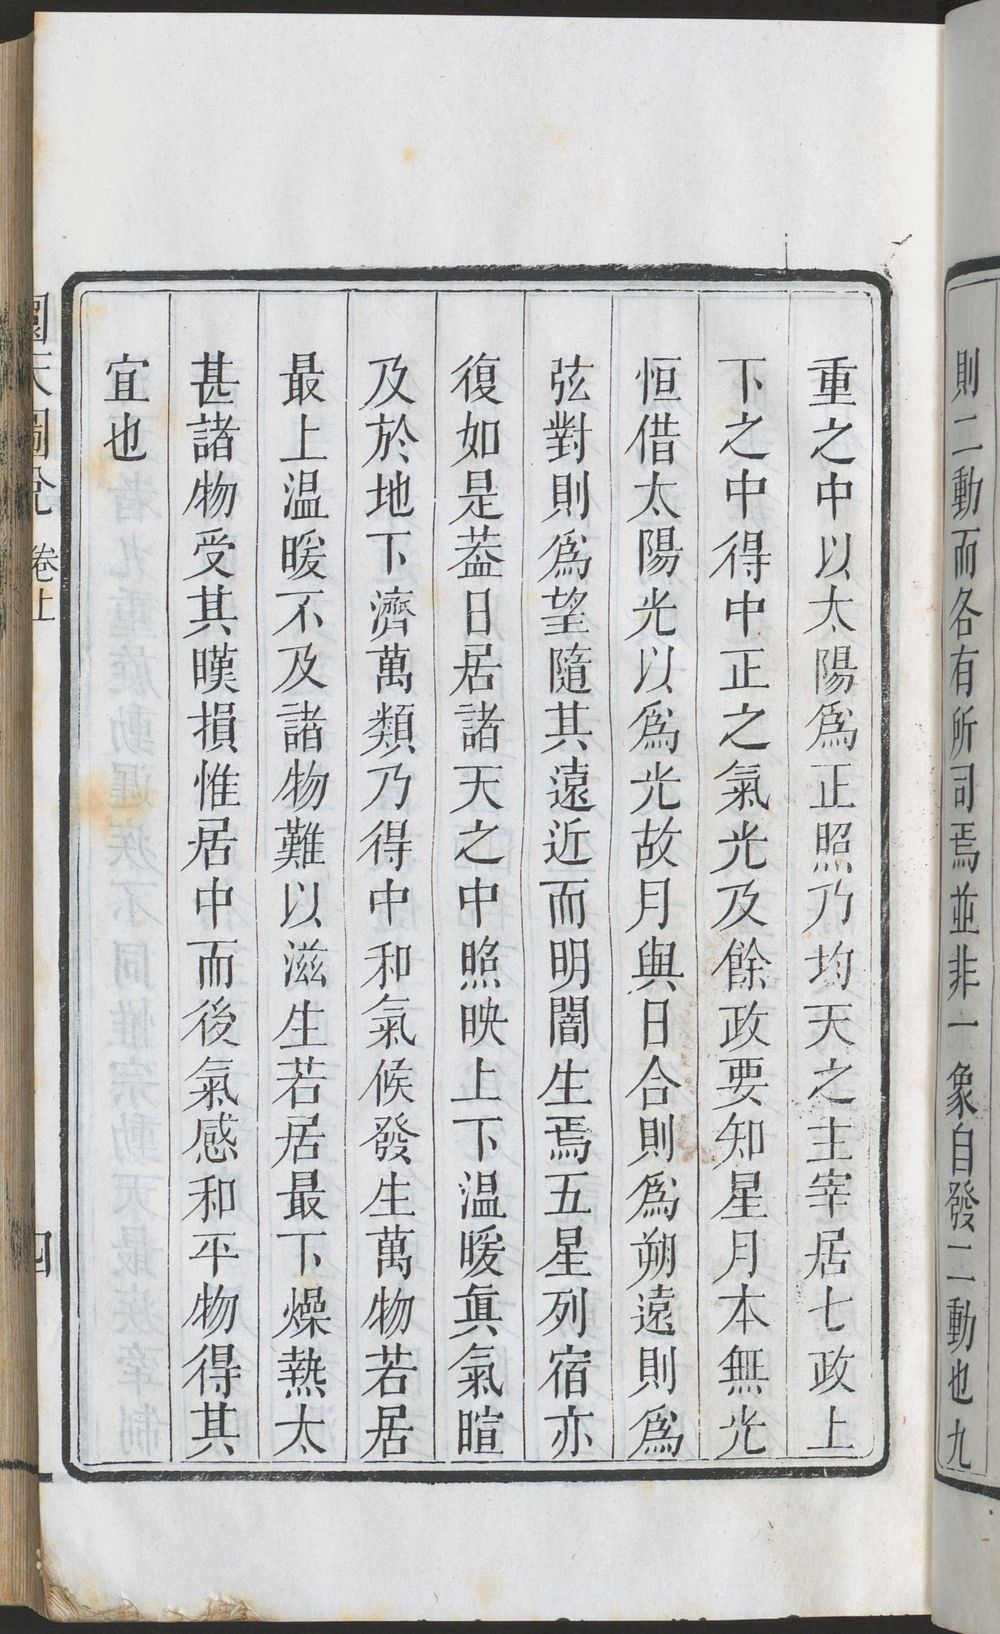 則二動而各有所司焉並非一象自發二動也九
重之中以太陽爲正照乃均天之主宰居七政上
下之中得中正之氣光及餘政要知星月本無光
恒借太陽光以爲光故月與日合則爲朔遠則爲
弦對則爲望隨其遠近而明闇生焉五星列宿亦
復如是葢日居諸天之中照映上下温暖眞氣暄
及於地下濟萬類乃得中和氣候發生萬物若居
最上温暖不及諸物難以滋生若居最下燥熱太
甚諸物受其暵損惟居中而後氣感和平物得其
宜也
圜天圖說 卷上 四